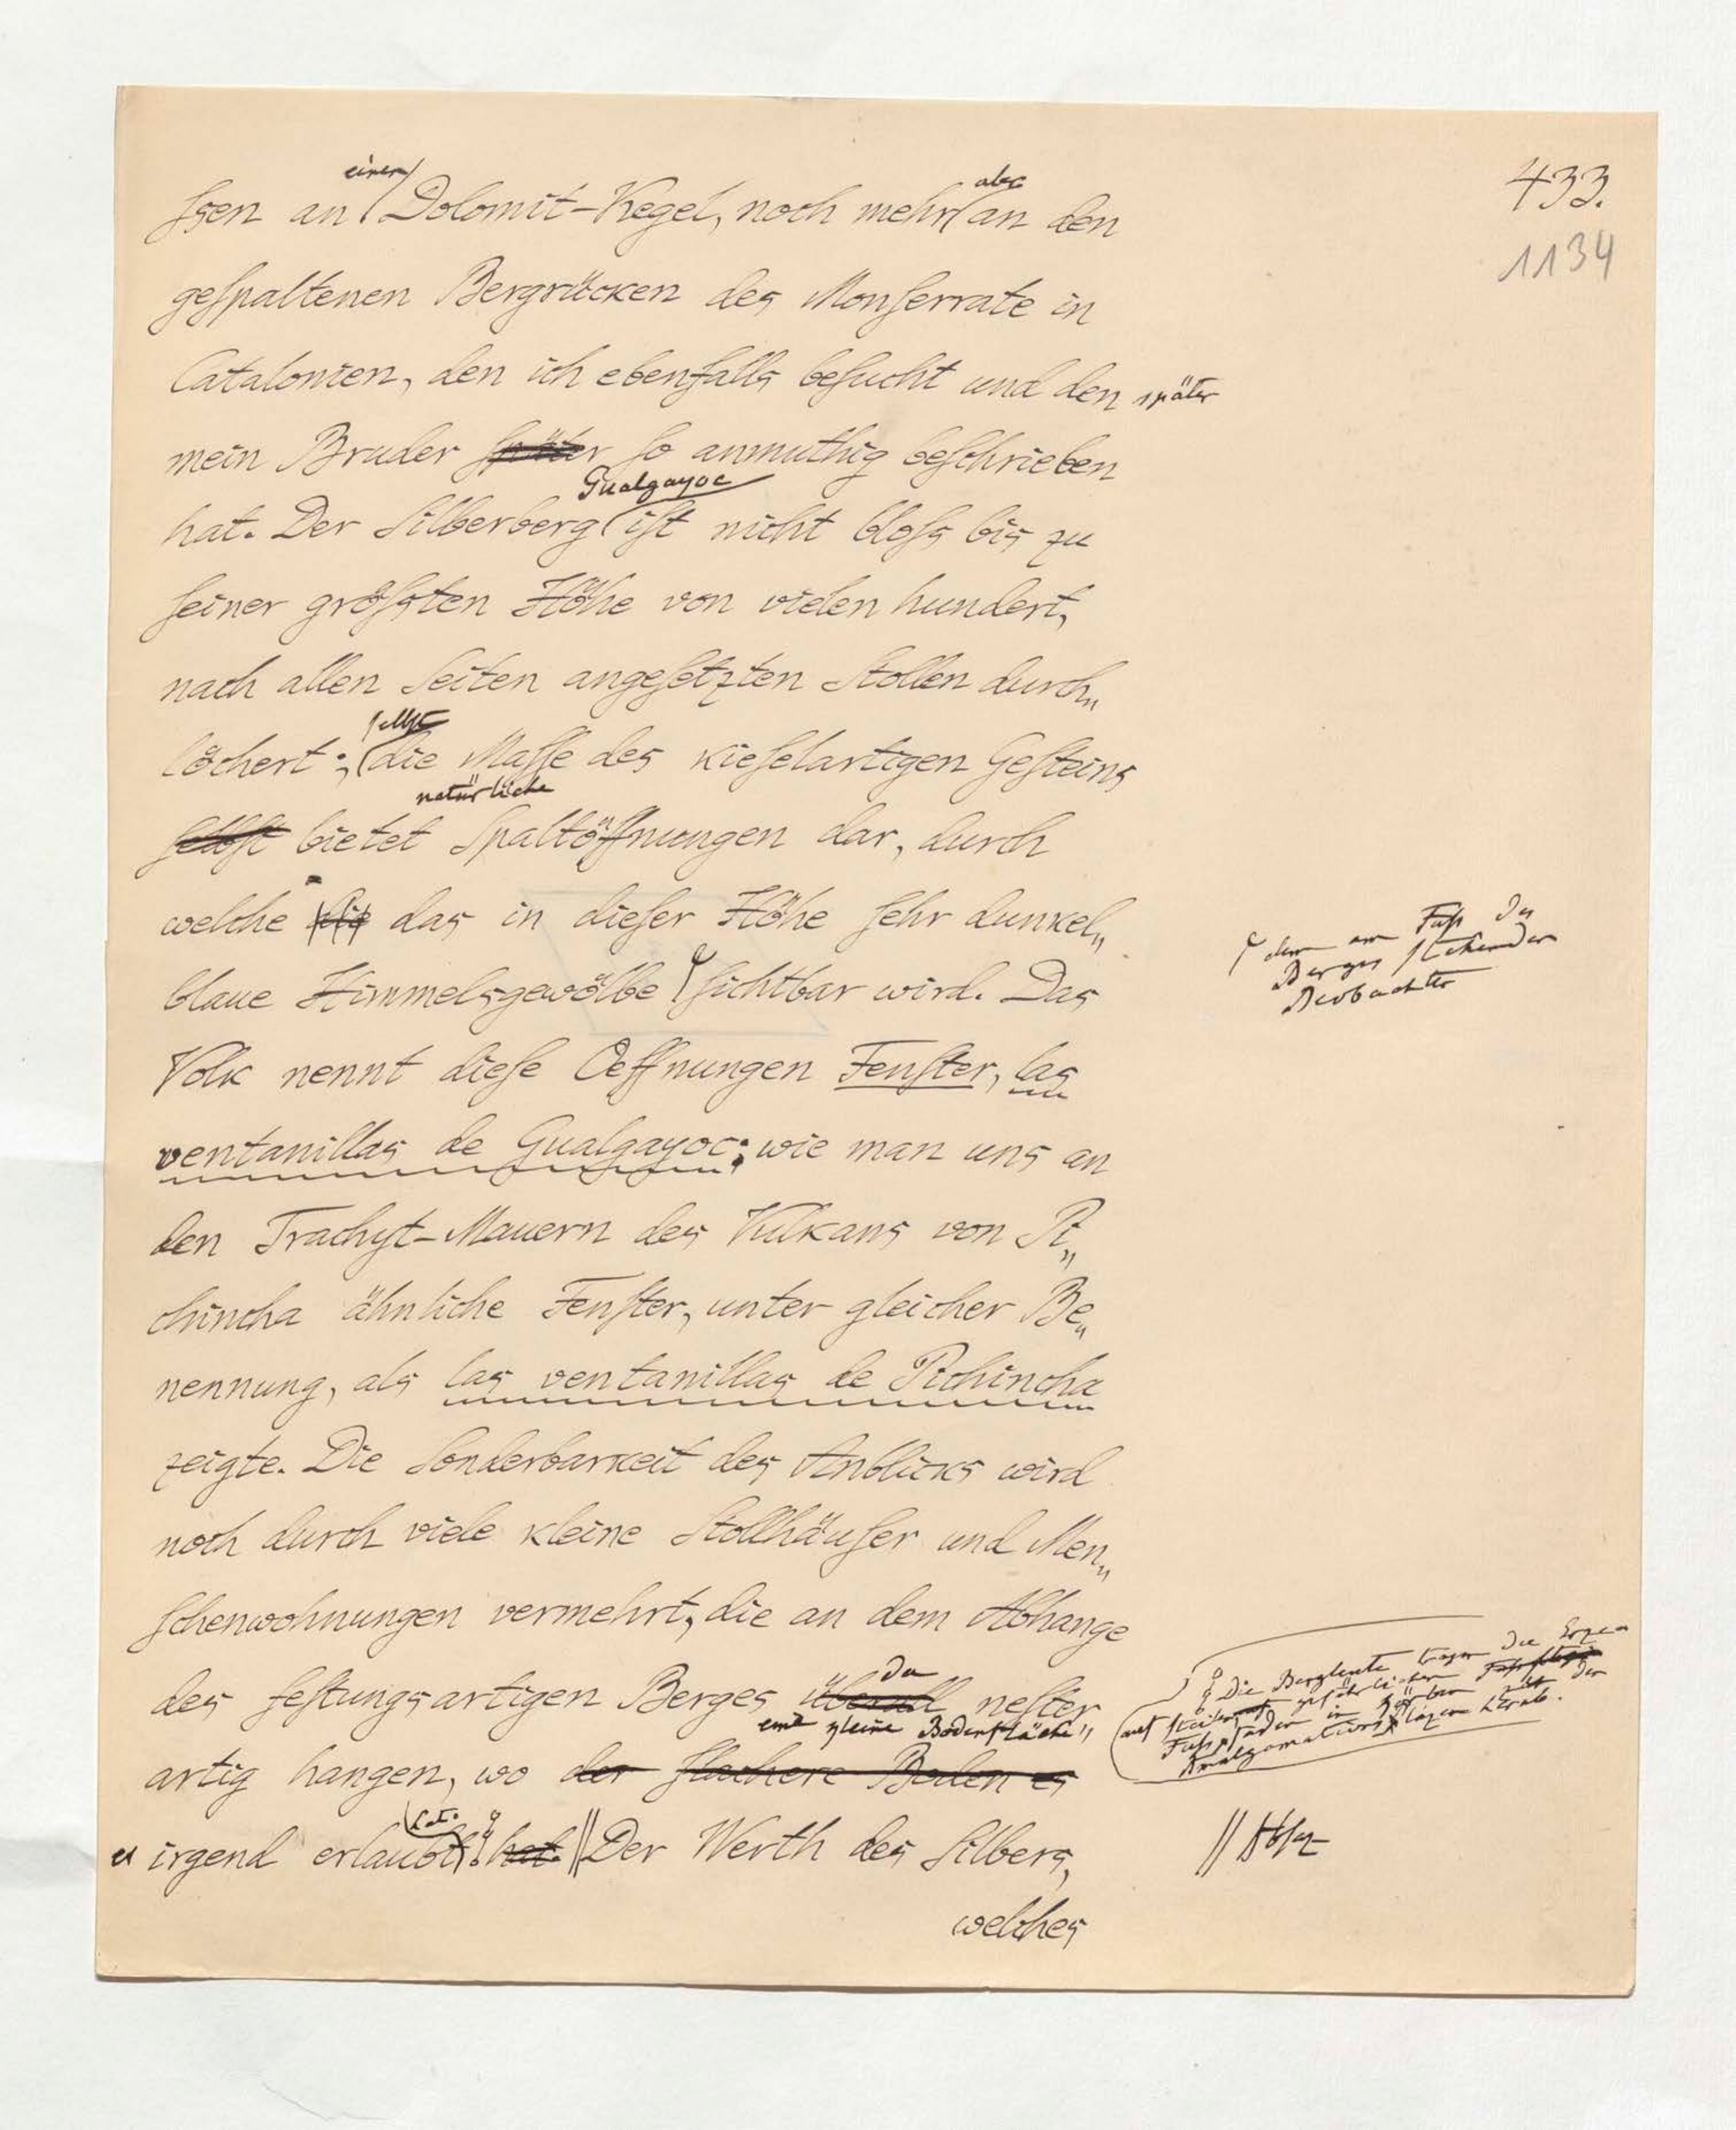 433.
1134
einen
ſsen an Dolomit-Kegel, noch mehr an den
aber
geſpaltenen Bergrücken des Monſerrate in
Catalonien, den ich ebenfalls beſucht und den später
mein Bruder ſpäter ſo anmuthig beſchrieben
Gualgayoc
hat. Der Silberberg iſt nicht bloſs bis zu
ſeiner gröſsten Höhe von vielen hundert,
nach allen Seiten angeſetzten Stollen durch„
ſelbſt
löchert; die Maſſe des kieſelartigen Geſteins
natürliche
ſelbſt bietet Spaltöffnungen dar, durch
welche die das in dieſer Höhe ſehr dunkel„
blaue Himmelsgewölbe ſichtbar wird. Das
dem am Fuß des
Berges stehenden
Beobachter
Volk nennt dieſe Oeffnungen Fenſter, las
ventanillas de Gualgayoc; wie man uns an
den Trachyt-Mauern des Vulkans von Pi„
chincha ähnliche Fenſter, unter gleicher Be„
nennung, als las ventanillas de Pichincha
zeigte. Die Sonderbarkeit des Anblicks wird
noch durch viele kleine Stollhäuſer und Men„
ſchenwohnungen vermehrt, die an dem Abhange
da
des feſtungsartigen Berges überall neſter
eine kleine Bodenfläche
artig hangen, wo der flachere Boden es
es irgend erlaubt hat. Der Werth des Silbers,
Die Bergleute tragen die Erze
auf steilen gefährlichen
Fußpfaden in Körben zu den
Amalgamationsplätzen herab.
// Absz
welches